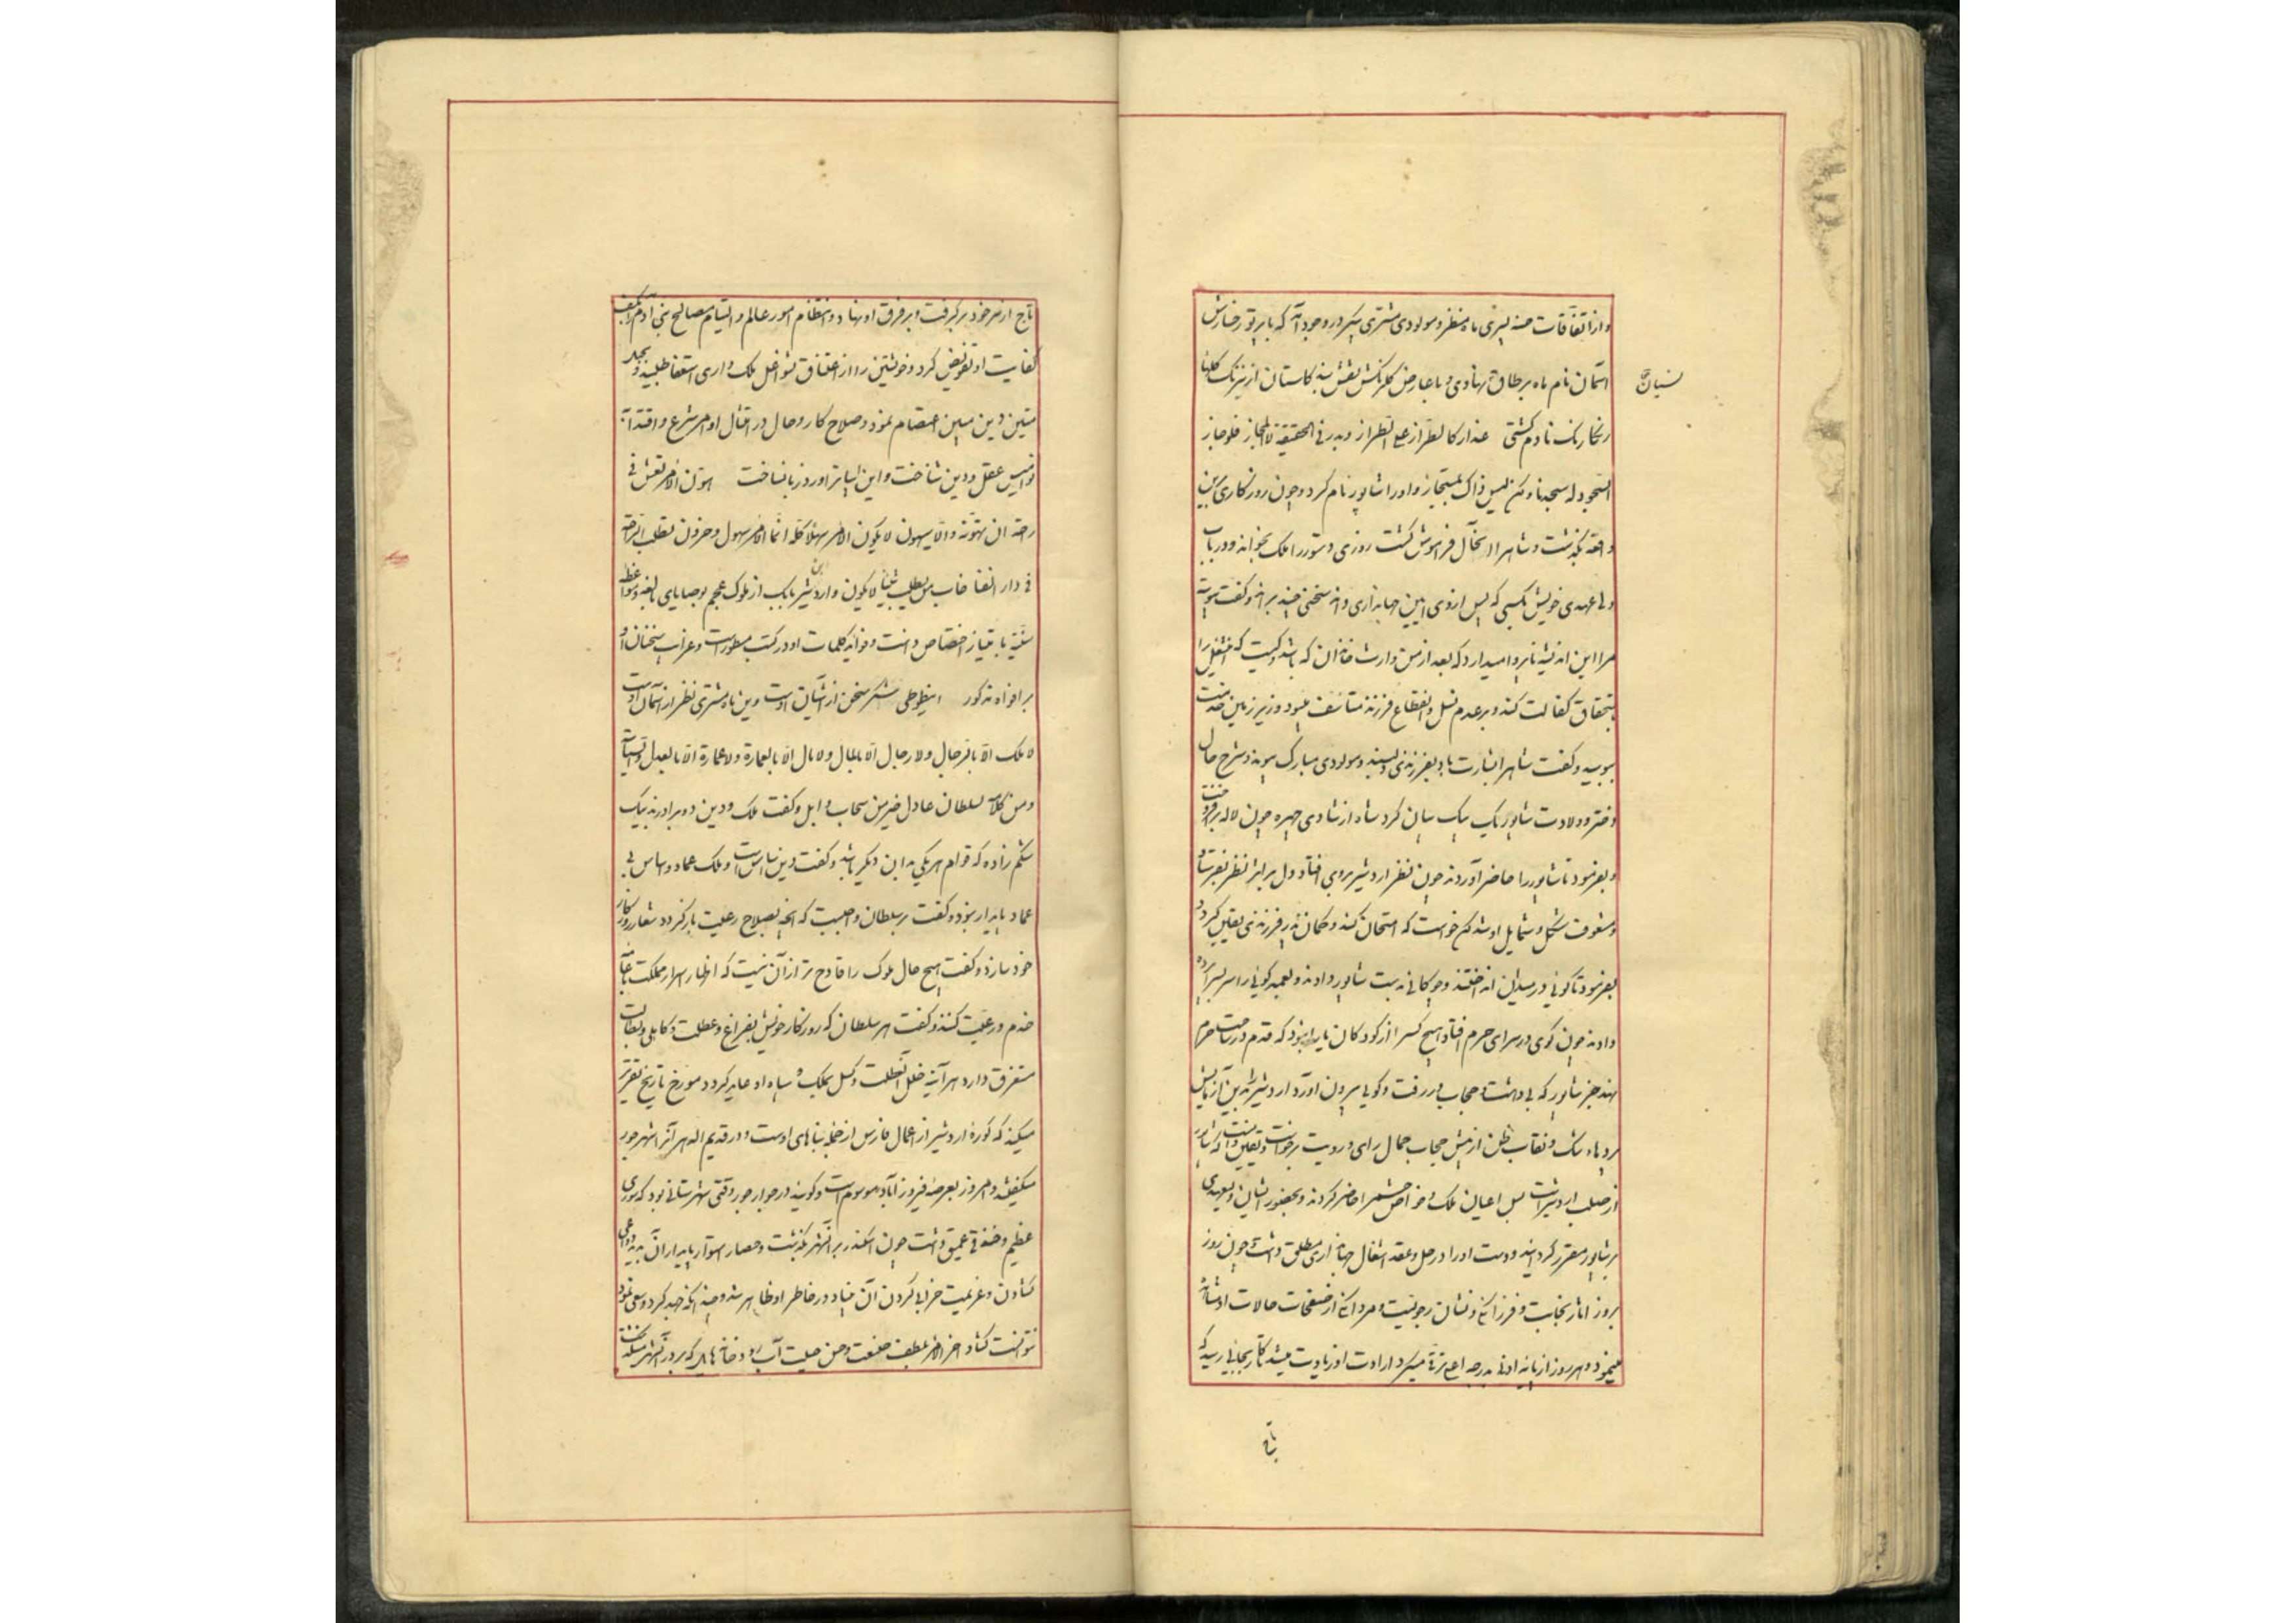 و از اتفاقات حسنه پسری ماه منظر و مولودی مشتری پیکر در وجود آمد که با پرتو رخسارش
آسمان نام ماه بر طاق نهادی و با عارض گلرنگش نقش بند گلستان از نیرنگ گلها
نسیان
رنگارنگ نادم گشتی عذار کالطراز علی الطراز وبدر فی الحقیقة لا المجاز فلو جاز
السجود له سجدنا ولکن لیس ذاک بمستجاز و او را شاپور نام کرد و چون روزگاری برین
واقعه بگذشت و شاهرا آن حال فراموش گشت روزی دستور را ملک بخواند و در باب
ولی عهدی خویش بکسی که پس از وی آیین جهانداری داند سخنی چند براند و گفت پیوسته
مرا این اندیشه ناپروا میدارد که بعد از من وارث خاندان که باشد و کیست که این شغل را
باستحقاق کفالت کند و بر عدم نسل و انقطاع فرزند متأسف میبود وزیر زمین خدمت
ببوسید و گفت شاهرا بشارت باد بفرزندی دلپسند و مولودی مبارک پیوند و شرح حال
دختر و ولادت شاپور یک بیک بیان کرد شاه از شادی چهره چون لاله برافروخت
و بفرمود تا شاپور را حاضر آوردند چون نظر اردشیر بر وی افتاد دل بر اثر نظر بفرستاد
و مشعوف شکل و شمایل او شد لکن خواست که امتحان کند و گمان پدر فرزندی بیقین گردد
بفرمود تا گویی در میدان انداختند و چوگانی بدست شاپور دادند و لعبه گویی را سر بسر آمده
دادند چون گوی در سرای حرم افتاد هیچ کس را از کودکان یارا نبود که قدم در ساحت حرم
نهند جز شاپور که بی دهشت و حجاب در رفت و گوی بیرون آورد اردشیر را بدین آزمایش
پرده شک و نقاب ظن از پیش حجاب جمال رای و رویت برخواست و بیقین دانست که شاپور
از صلب اردشیرست پس اعیان ملک و خواص حشم را حاضر کردند و بحضور ایشان ولیعهدی
بر شاپور مقرر گردانید و دست او را در حل و عقد اشغال جهانداری مطلق داشت چون روز
بروز آثار نجابت و فرزانگی و نشان رجولیت و مردانگی از صفحات حالات او مشاهده
میخود و هر روز از پایه ادنی بدرجه اعلی ترقی میکرد ارادت او زیادت میشد تا کار بجایی رسید که
تاج
تاج از سر خود برگرفت و بر فرق او نهاد و انتظام امور عالم و التیام مصالح بنی آدم را بکف
کفایت او تفویض کرد و خویشتن را از اعتناق شواغل ملک داری استعفا طلبید و بحبل
متین دین مبین اعتصام نمود و صلاح کار و حال در امتثال اوامر شرع و اقتدا به
نوامیس عقل و دین شناخت و این ابیات را ورد زبان ساخت هون الامر تعش فی
راحة ان تهونه والا سیهون لا یکون الامر سهلا کله انما الامر سهول وحزون تطلب الراحة
فی دار الفنا خاب من یطلب شیئا لا یکون و اردشیر بن بابک از ملوک عجم بوصایای بالغه و مواعظ
سنیه بامتیاز اختصاص داشت و فواید کلمات او در کتب مسطورست و غرایب سخنان او
بر افواه مذکور این طوطی شکر سخن از آشیان اوست وین ماه مشتری نظر از آسمان اوست
لا ملک الا بالرجال ولا رجال الا بالمال ولا مال الا بالعمارة ولا عمارة الا بالعدل والسیاسة
ومن کلامه السلطان عادل خیر من سحاب وابل و گفت ملک و دین دو برادرند بیک
شکم زاده که قوام هر یکی بدان دیگر باشد و گفت دین اساس است و ملک عماد و اساس بی
عماد پایدار نبود و گفت بر سلطان واجبست که آنچه بصلاح رعیت بازگردد شعار روزگار
خود سازد و گفت هیچ حال ملوک را قادح تر از آن نیست که اظهار اسرار مملکت با عامه
خدم و رعیت کنند و گفت هر سلطان که روزگار خویش بفراغ و عطلت و کاهلی و بطالت
مستغرق دارد هر آینه خلل آن عطلت و کسل بملک و سپاه او عاید گردد مورخ تاریخ تقریر
میکند که کوره اردشیر از اعمال فارس از جمله بناهای اوست و در قدیم الدهر آنرا شهر جور
میگفتند و امروز بعرصه فیروزآباد موسوم است و گویند در جوار جور وقتی شهرستانی بود که سوری
عظیم و خندقی عمیق داشت چون اسکندر بر آن شهر بگذشت و حصار استوار پایدار آن بدید دواعی
گشادن و عزیمت خراب کردن آن بنیاد در خاطر او ظاهر شد و چندانکه جهد کرد و سعی نمود
نتوانست گشاد آخر الامر بلطف صنعت و حسن حیلت آب رودخانه هایی که بر در آن شهر میگذشت